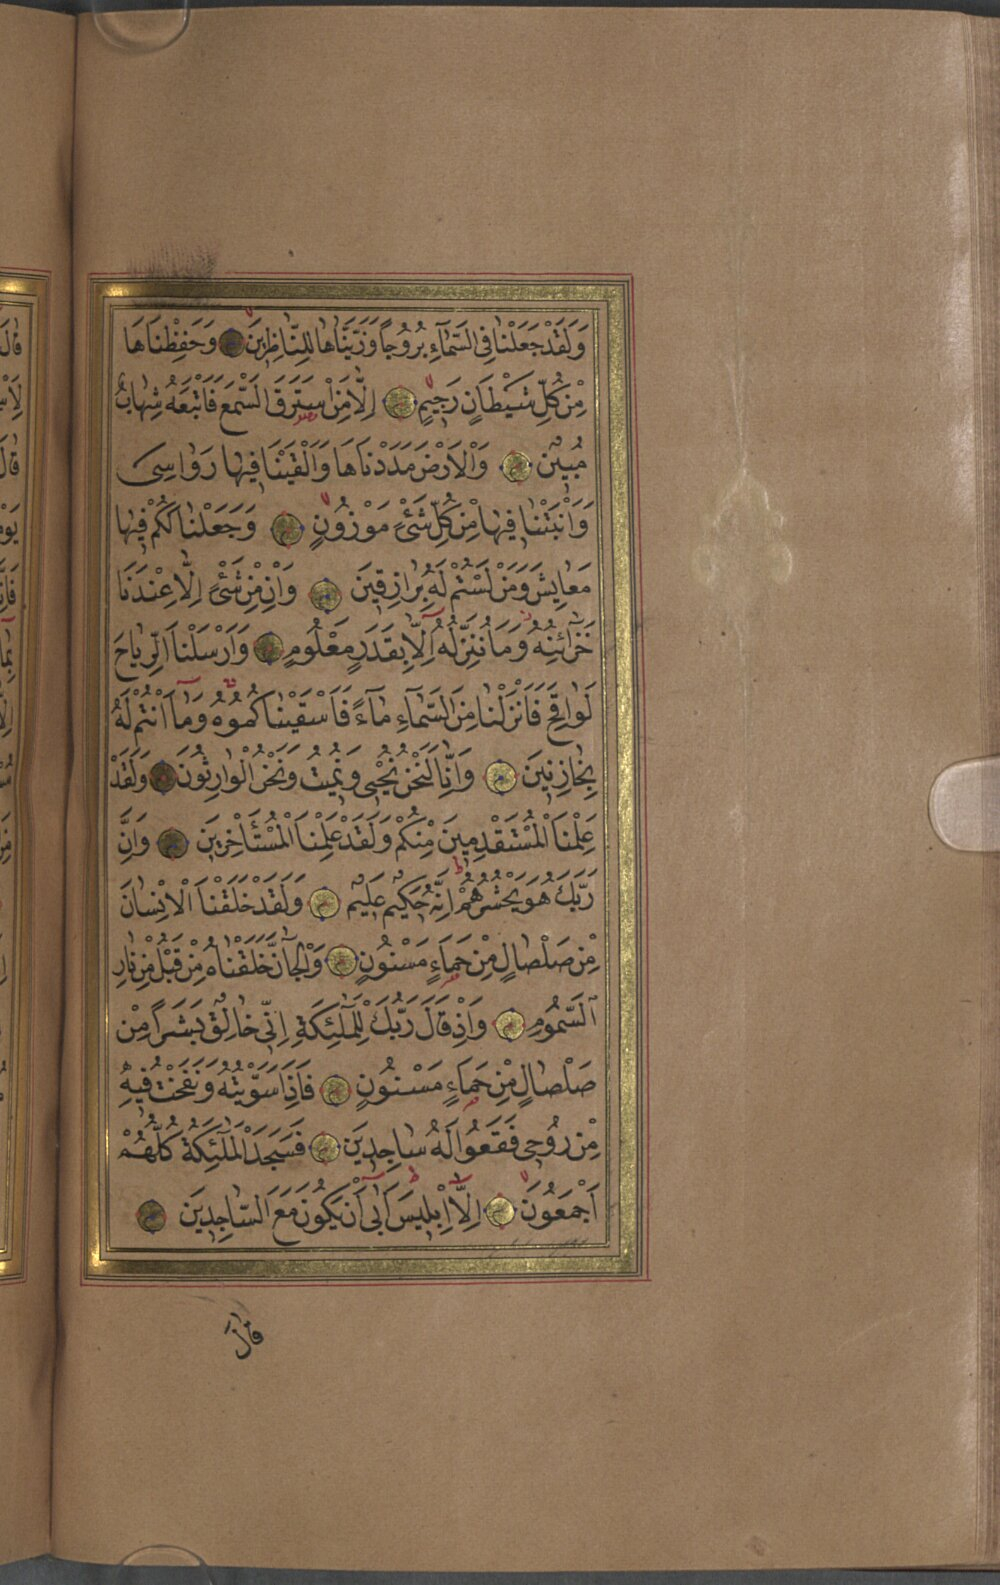 وَلَقَدْ جَعَلْنَا فِي السَّمَآءِ بُرُوجًا وَزَيَّنَّاهَا لِلنَّاظِرِينَ وَحَفِظْنَاهَا
مِنْ كُلِّ شَيْطَانٍ رَجِيمٍ اِلَّا مَنِ اسْتَرَقَ السَّمْعَ فَاَتْبَعَهُ شِهَابٌ
مُبِينٌ وَالْاَرْضَ مَدَدْنَاهَا وَاَلْقَيْنَا فِيهَا رَوَاسِىَ
وَاَنْبَتْنَا فِيهَا مِنْ كُلِّ شَئْءٍ مَوْزُونٍ وَجَعَلْنَا لَكُمْ فِيهَا
مَعَايِشَ وَمَنْ لَسْتُمْ لَهُ بِرَازِقِينَ وَاِنْ مِنْ شَئْءٍ اِلَّا عِنْدَنَا
خَزَآئِنُهُ وَمَا نُنَزِّلُهُ اِلَّا بِقَدَرٍ مَعْلُومٍ وَاَرْسَلْنَا الرِّيَاحَ
لَوَاقِحَ فَاَنْزَلْنَا مِنَ السَّمَآءِ مَآءً فَاَسْقَيْنَاكُمُوهُ وَمَآ اَنْتُمْ لَهُ
بِخَازِنِينَ وَاِنَّا لَنَحْنُ نُحْيِى وَنُمِيتُ وَنَحْنُ الْوَارِثُونَ وَلَقَدْ
عَلِمْنَا الْمُسْتَقْدِمِينَ مِنْكُمْ وَلَقَدْ عَلِمْنَا الْمُسْتَأْخِرِينَ وَاِنَّ
رَبَّكَ هُوَ يَحْشُرُهُمْ اِنَّهُ حَكِيمٌ عَلِيمٌ وَلَقَدْ خَلَقْنَا الْاِنْسَانَ
مِنْ صَلْصَالٍ مِنْ حَمَاءٍ مَسْنُونٍ وَالْجَآنَّ خَلَقْنَاهُ مِنْ قَبْلُ مِنْ نَارِ
السَّمُومِ وَاِذْ قَالَ رَبُّكَ لِلْمَلٰٓئِكَةِ اِنِّى خَالِقٌ بَشَرًا مِنْ
صَلْصَالٍ مِنْ حَمَاءٍ مَسْنُونٍ فَاِذَا سَوَّيْتُهُ وَنَفَخْتُ فِيهِ
مِنْ رُوحِى فَقَعُوا لَهُ سَاجِدِينَ فَسَجَدَ الْمَلٰٓئِكَةُ كُلُّهُمْ
اَجْمَعُونَ اِلَّآ اِبْلِيسَ اَبٰى اَنْ يَكُونَ مَعَ السَّاجِدِينَ
قَالَ